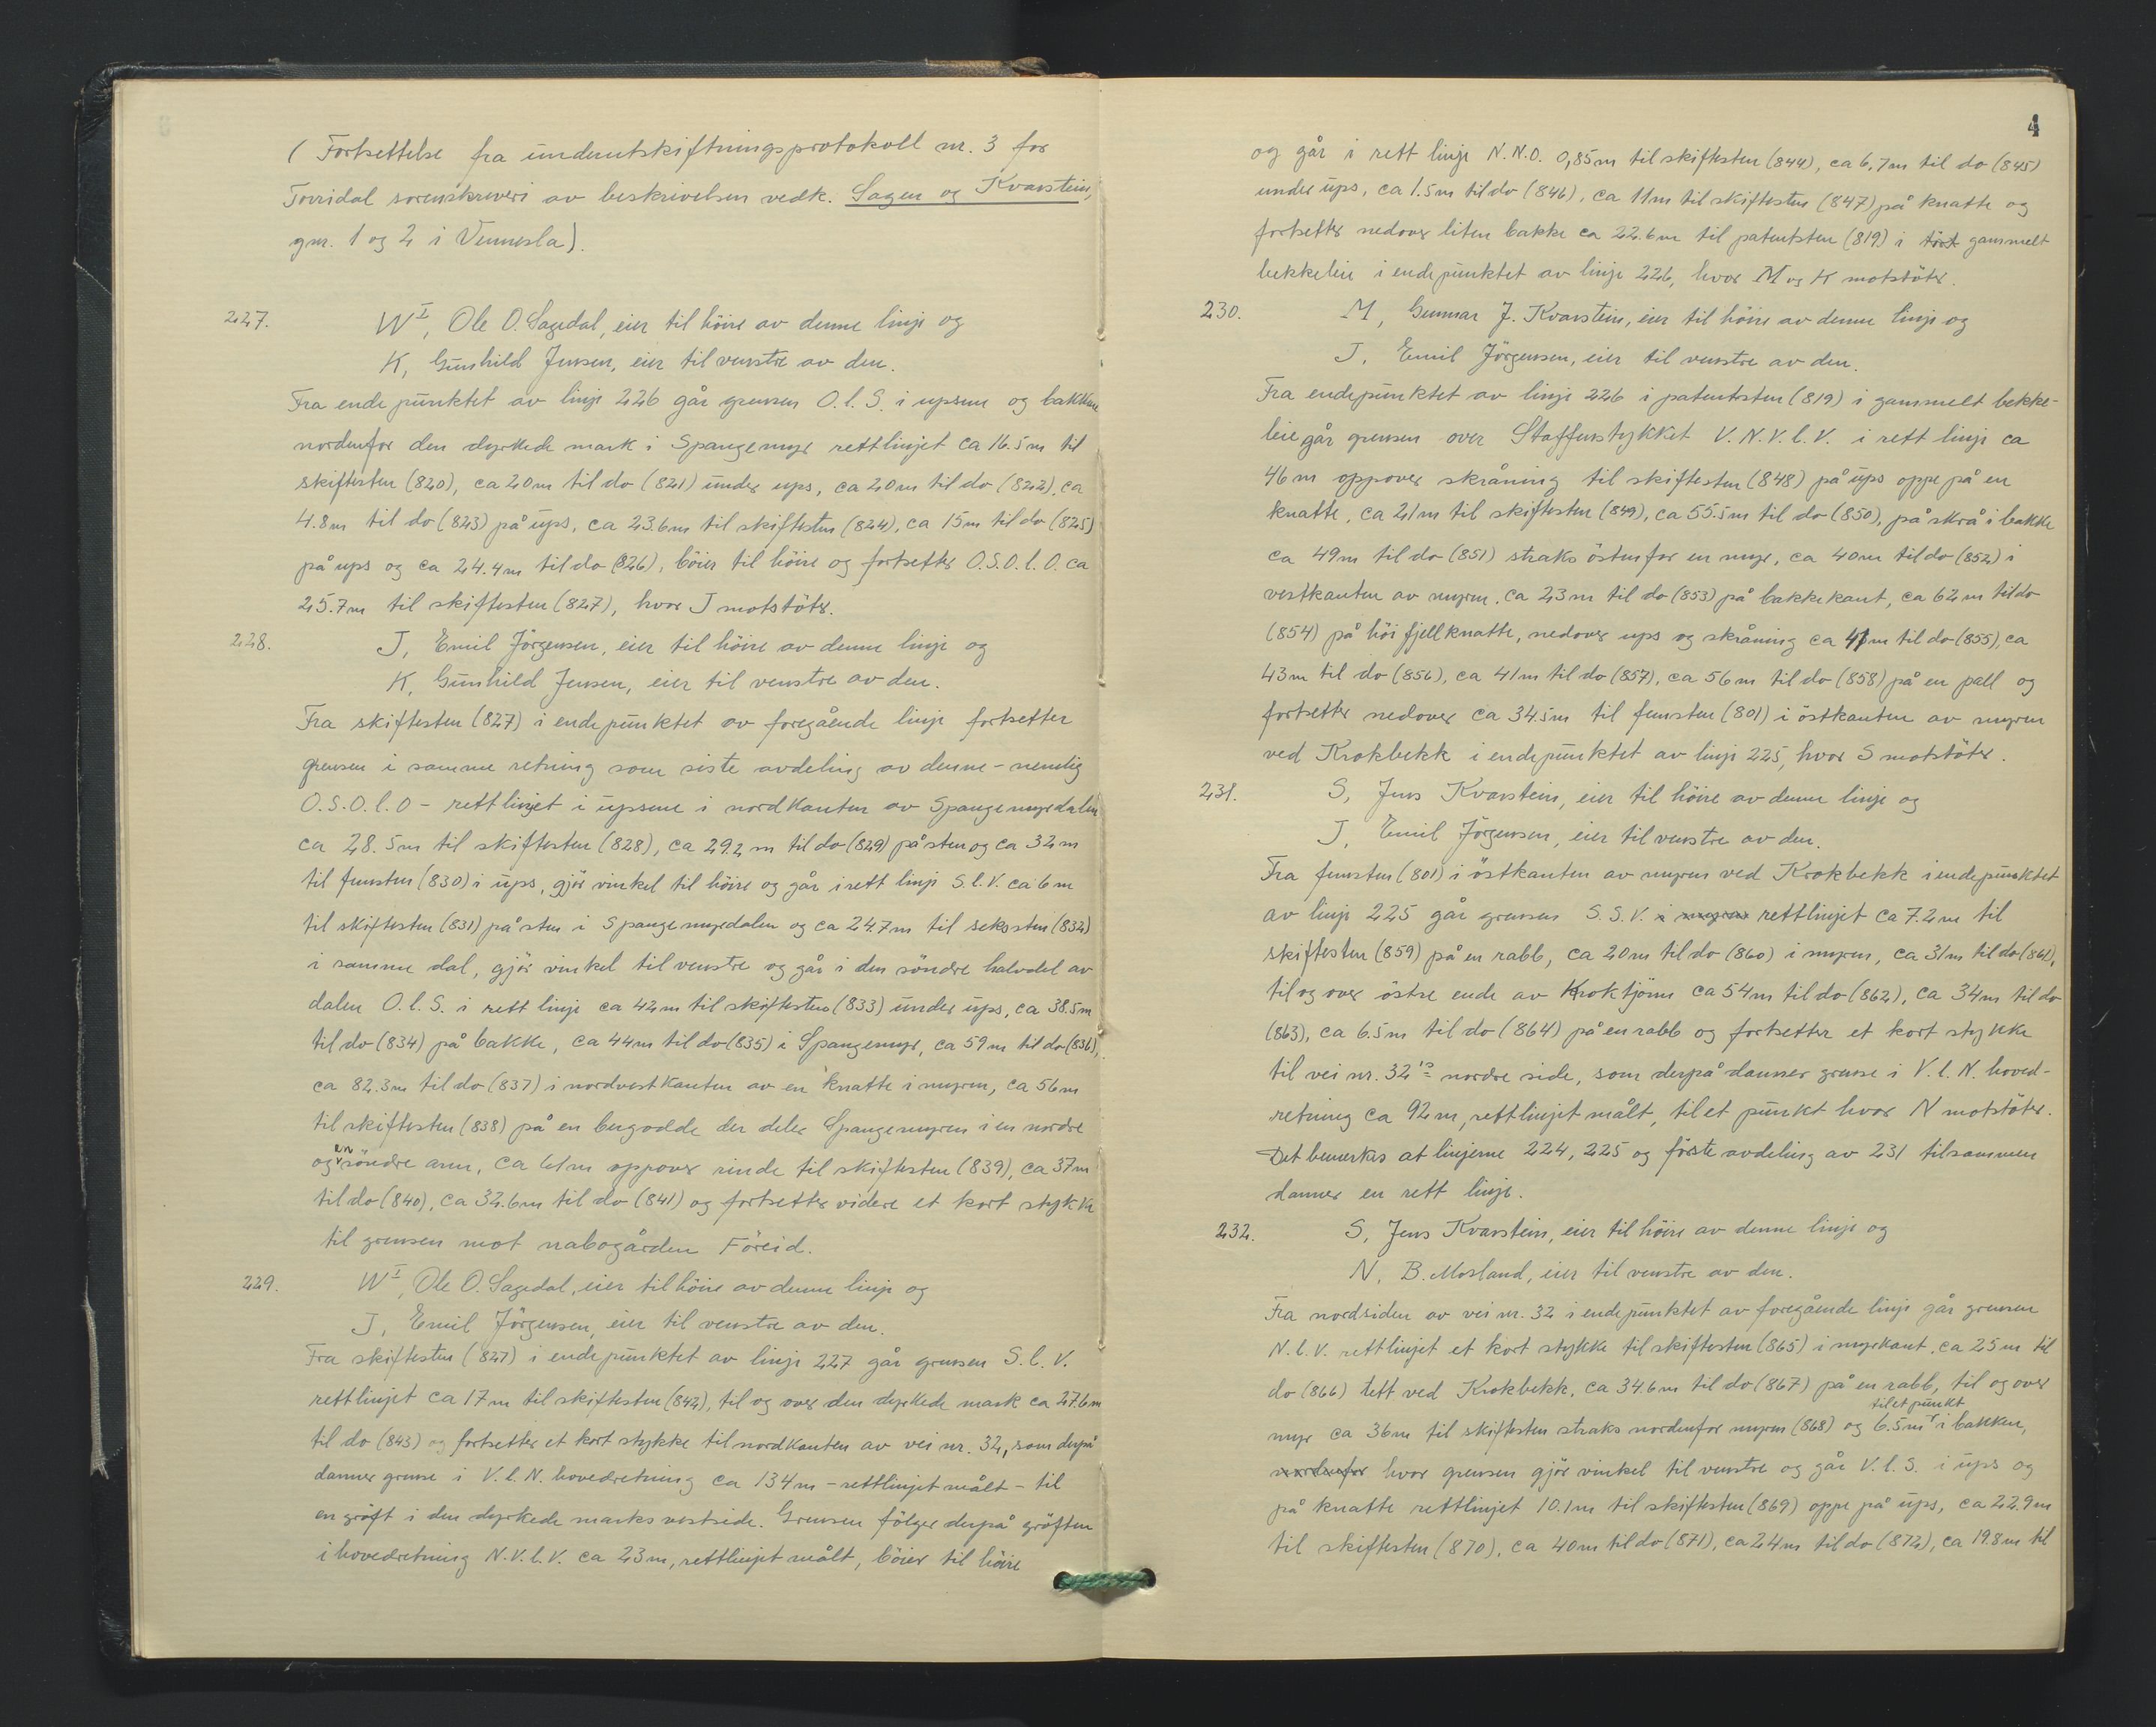 ( Fortsettelse fra underutskiftningsprotokoll nr. 3 for
Torridal sorenskriveri av beskrivelsen vedk. Sagen og Kvarstein,
gnr. 1 og 2 i Vennesla).
227. W I, Ole O. Sagedal, eier til höire av denne linje og
K, Gunhild Jensen, eier til venstre av den.
Fra endepunktet av linje 226 går grensen O. l. S. i upsene og bakkene
nordenfor den dyrkede mark i Spangemyr rettlinjet ca 16.5m til
skiftesten (820), ca 20m til do (821) under ups, ca 20m til do (822), ca
4.8m til do (823) på ups, ca 23.6m til skiftesten (824), ca 15m til do (825)
på ups og ca 24.4m til do (826), böier til höire og fortsetter O.S.O. l. O. ca
25.7m til skiftesten (827), hvor J motstöter.
228. J, Emil Jörgensen, eier til höire av denne linje og
K, Gunhild Jensen, eier til venstre av den.
Fra skiftesten (827) i endepunktet av foregående linje fortsetter
grensen i samme retning som siste avdeling av denne - nemlig
O.S.O. l. O - rettlinjet i upsene i nordkanten av Spangemyrdalen
ca 28.5m til skiftesten (828), ca 29.2 m til do (829) på sten og ca 32m
til femsten (830) i ups, gjör vinkel til höire og går i rett linje S. l. V. ca 6m
til skiftesten (831) på sten i Spangemyrdalen og ca 24.7m til seksten (832)
i samme dal, gjör vinkel til venstre og går i den söndre halvdel av
dalen O. l. S. i rett linje ca 42m til skiftesten (833) under ups, ca 38.5m
til do (834) på bakke, ca 44m til do (835) i Spangemyr, ca 59m til do (836),
ca 82.3m til do (837) i nordvestkanten av en knatte i myren, ca 56m
til skiftesten (838) på en bergodde der deler Spangemyren i en nordre
og en söndre arm, ca 61m oppover rinde til skiftesten (839), ca 37m
til do (840), ca 32.6m til do (841) og fortsetter videre et kort stykke
til grensen mot nabogården Föreid.
229. W I, Ole O. Sagedal, eier til höire av denne linje og
J, Emil Jörgensen, eier til venstre av den.
Fra skiftesten (827) i endepunktet av linje 227 går grensen S. l. V.
rettlinjet ca 17m til skiftesten (842), til og over den dyrkede mark ca 27.6m
til do (843) og fortsetter et kort stykke til nordkanten av vei nr. 32, som derpå
danner grense i V. l. N. hovedretning ca 134m - rettlinjet målt - til
en gröft i den dyrkede marks vestside. Grensen fölger derpå gröften
i hovedretning N.V. l. V. ca 23m, rettlinjet målt, böier til höire
4
og går i rett linje N.N.O. 0,85m til skiftesten (844), ca 6.7m til do (845)
under ups, ca 1.5m til do (846), ca 11m til skiftesten (847) på knatte og
fortsetter nedover liten bakke ca 22.6m til patentsten (819) i gammelt
bekkeleie i endepunktet av linje 226, hvor M og K motstöter.
230. M, Gunnar J. Kvarstein, eier til höire av denne linje og
J, Emil Jörgensen, eier til venstre av den.
Fra endepunktet av linje 226 i patentsten (819) i gammelt bekke-
leie går grensen over Staffenstykket V.N.V. l. V. i rett linje ca
46m oppover skråning til skiftesten (848) på ups oppe på en
knatte, ca 21m til skiftesten (849), ca 55.5m til do (850), på skrå i bakke
ca 49m til do (851) straks östenfor en myr, ca 40m til do (852) i
vestkanten av myren, ca 23m til do (853) på bakkekant, ca 62m til do
(854) på höi fjellknatte, nedover ups og skråning ca 41m til do (855), ca
43m til do (856), ca 41m til do (857), ca 56m til do (858) på en pall og
fortsetter nedover ca 34.5m til femsten (801) i östkanten av myren
ved Krokbekk i endepunktet av linje 225, hvor S motstöter.
231. S, Jens Kvarstein, eier til höire av denne linje og
J, Emil Jörgensen, eier til venstre av den.
Fra femsten (801) i östkanten av myren ved Krokbekk i endepunktet
av linje 225 går grensen S.S.V. i myren rettlinjet ca 7.2m til
skiftesten (859) på en rabb, ca 20m til do (860) i myren, ca 31m til do (861),
til og over östre ende av Kroktjönn ca 54m til do (862), ca 34m til do
(863), ca 6.5m til do (864) på en rabb og fortsetter et kort stykke
til vei nr. 32's nordre side, som derpå danner grense i V. l. N. hoved-
retning ca 92m, rettlinjet målt, til et punkt hvor N motstöter.
Det bemerkes at linjerne 224, 225 og förste avdeling av 231 tilsammen
danner en rett linje.
232. S, Jens Kvarstein, eier til höire av denne linje og
N, B. Mosland, eier til venstre av den.
Fra nordsiden av vei nr. 32 i endepunktet av foregående linje går grensen
N. l. V. rettlinjet et kort stykke til skiftesten (865) i myrkant, ca 25m til
do (866) tett ved Krokbekk, ca 34.6m til do (867) på en rabb, til og over
myr ca 36m til skiftesten straks nordenfor myren (868) og 6.5m til et punkt i bakken,
nordenfor hvor grensen gjör vinkel til venstre og går V. l. S. i ups og
på knatte rettlinjet 10.1m til skiftesten (869) oppe på ups, ca 22.9m
til skiftesten (870), ca 40m til do (871), ca 24m til do (872), ca 19.8m til